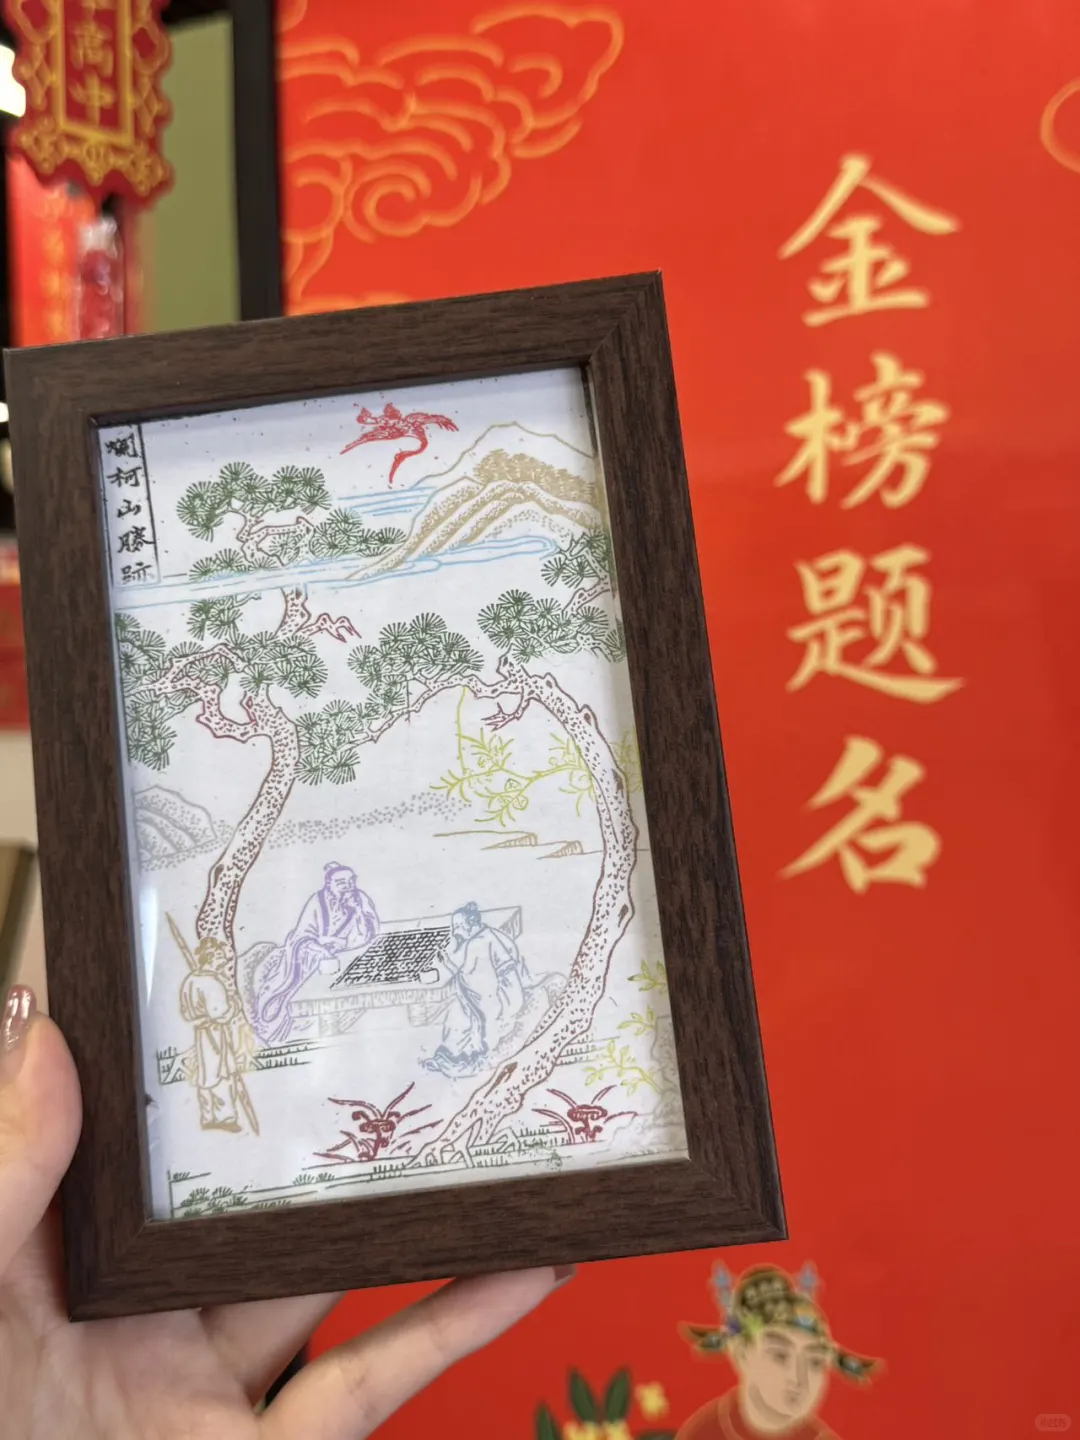 高中
金榜题名
爛柯山勝跡